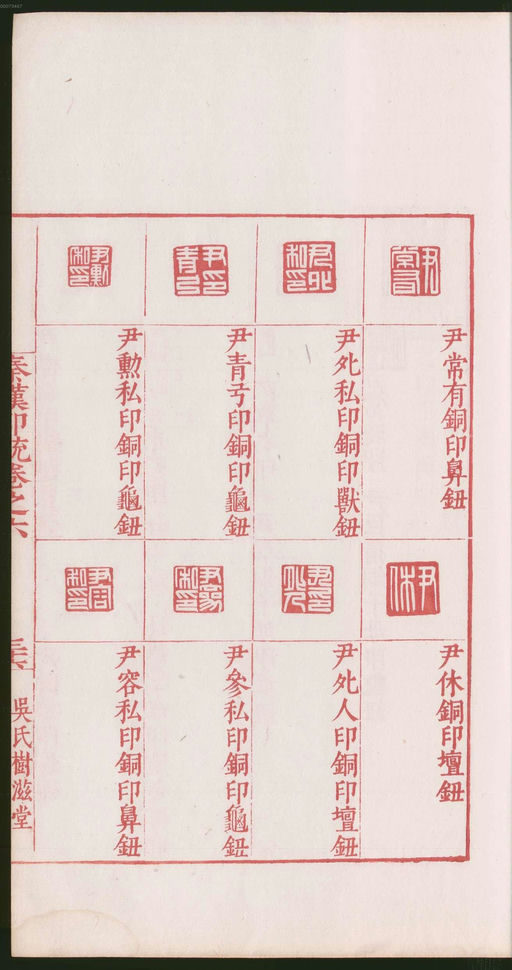 尹常有銅印鼻鈕
尹㐌私印銅印獸鈕
尹青弓印銅印龜鈕
尹勲私印銅印龜鈕
尹休銅印壇鈕
尹㐌人印銅印壇鈕
尹參私印銅印龜鈕
尹容私印銅印鼻鈕
秦漢印統卷之六
吳氏樹滋堂
00073467